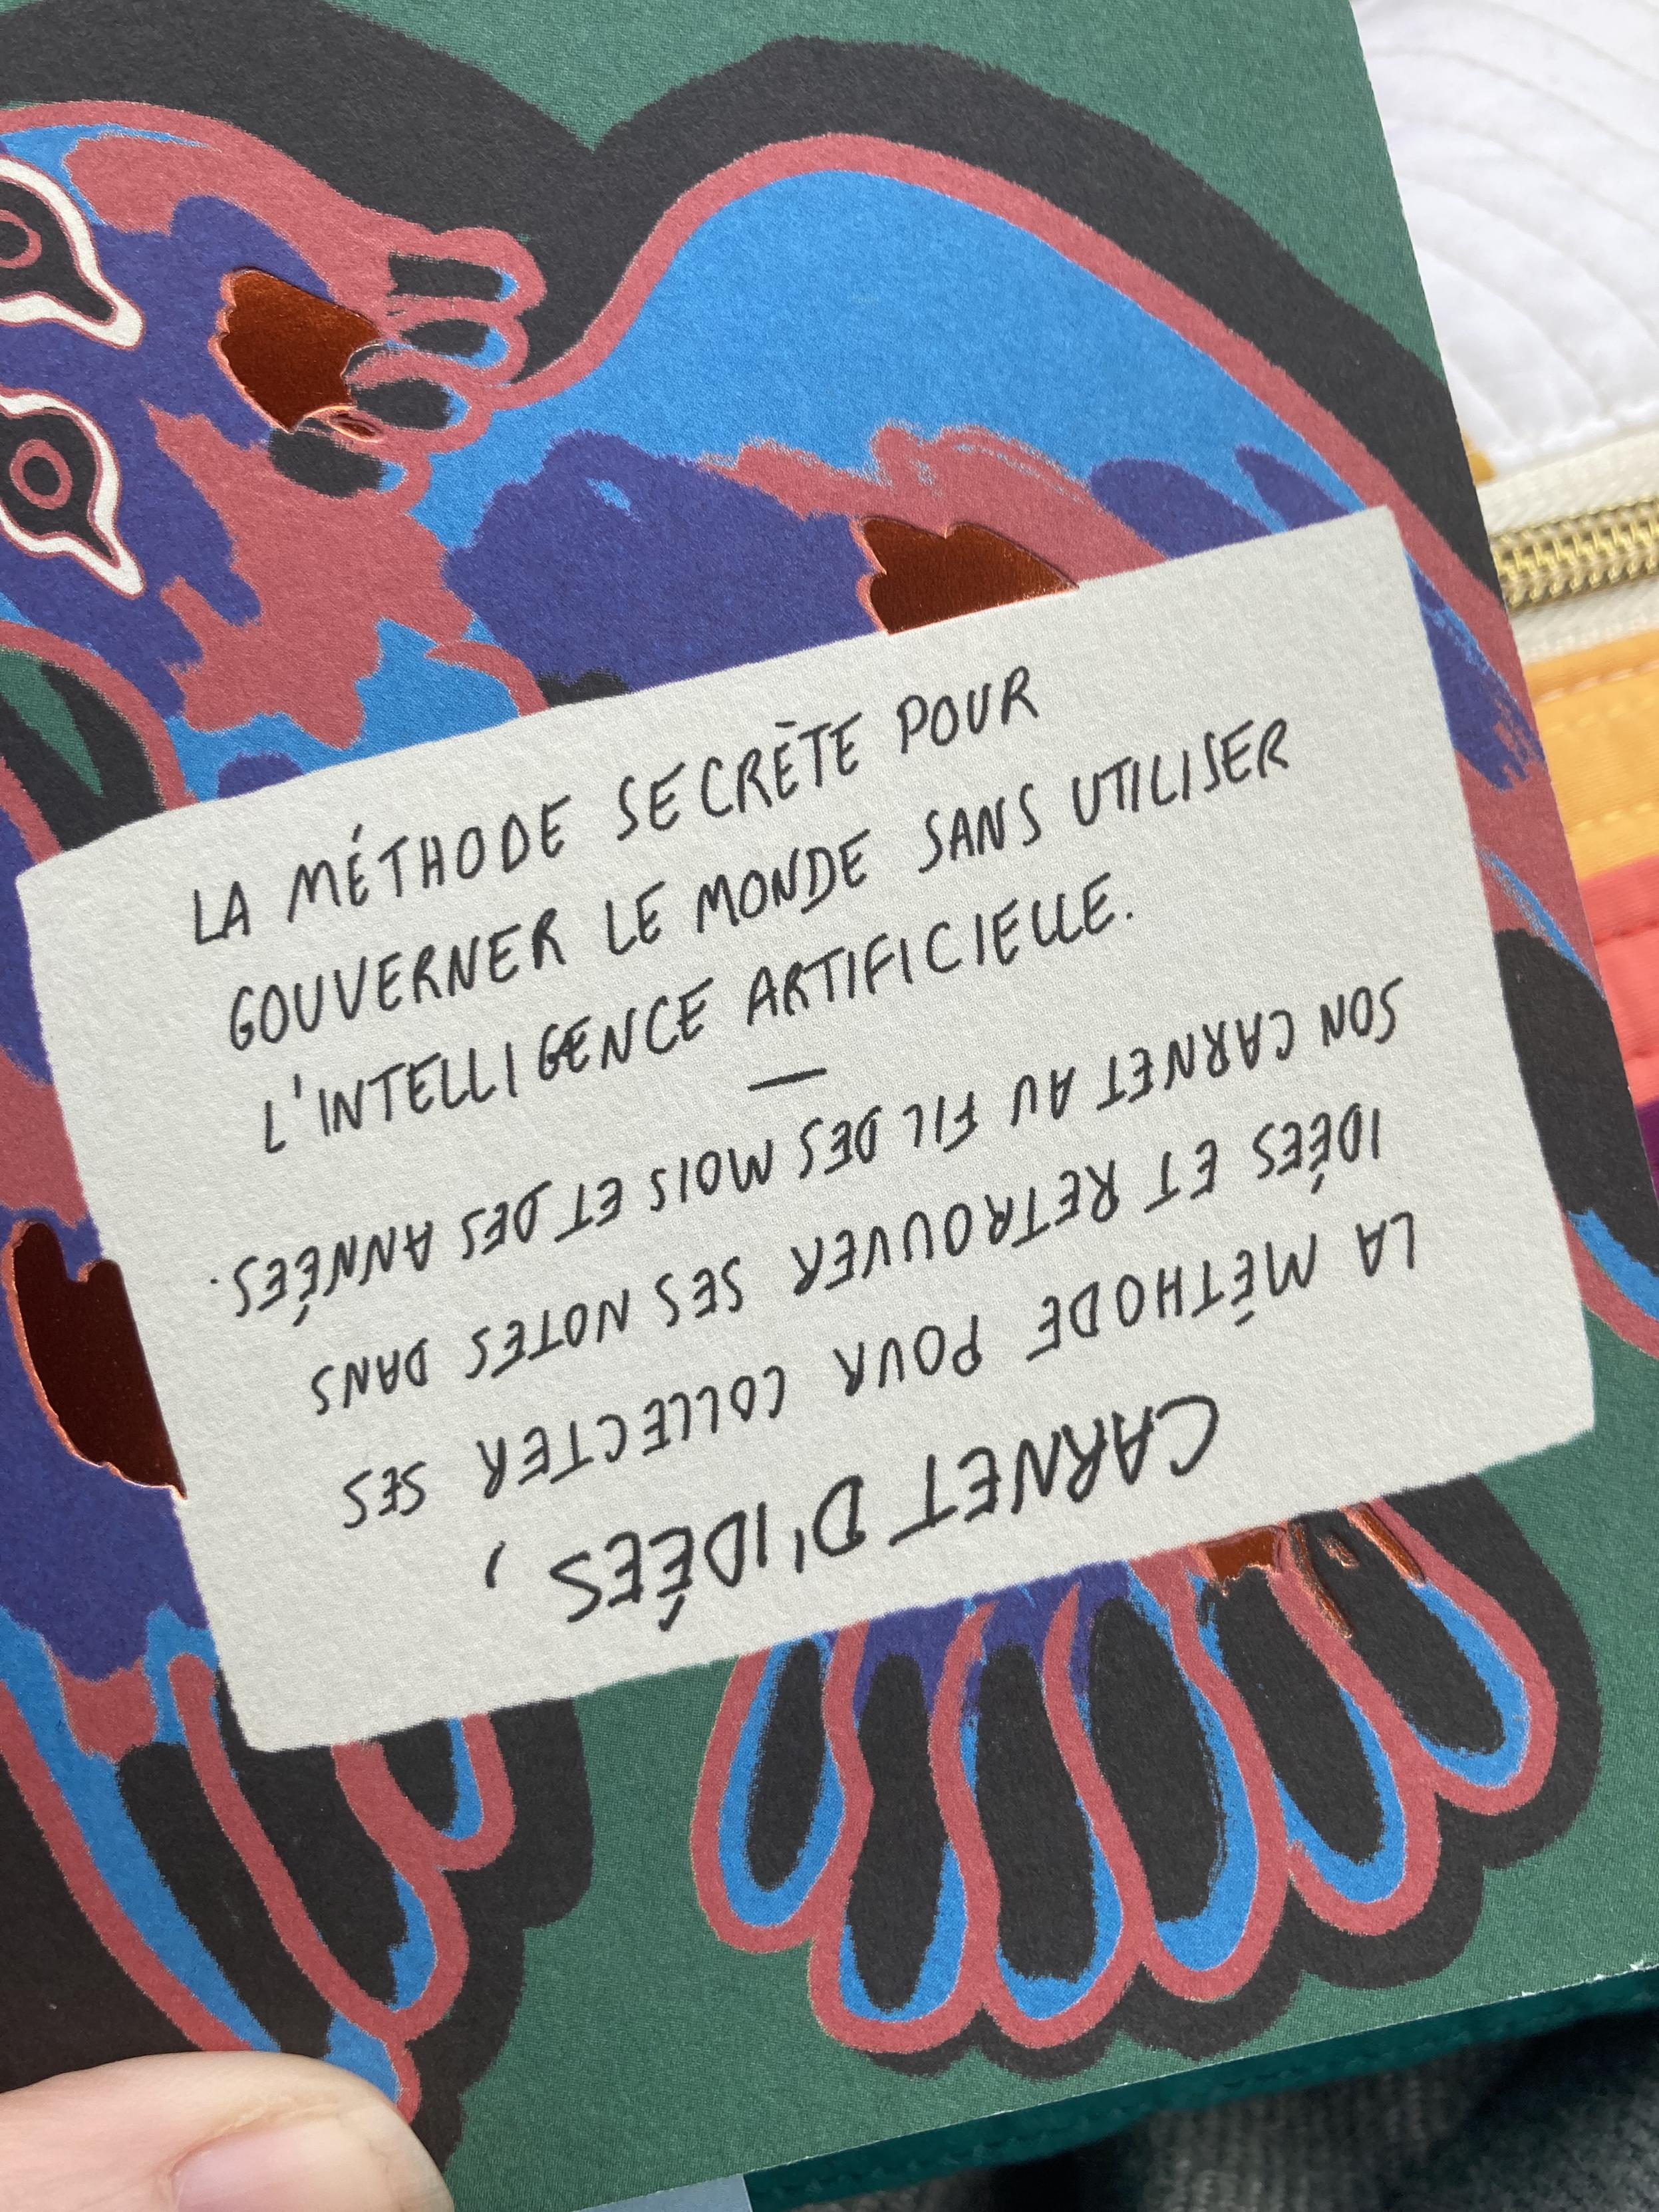 LA MÉTHODE SECRÈTE POUR
GOUVERNER LE MONDE SANS UTILISER
L'INTELLIGENCE ARTIFICIELLE.
—
CARNET D'IDÉES,
LA MÉTHODE POUR COLLECTER SES
IDÉES ET RETROUVER SES NOTES DANS
SON CARNET AU FIL DES MOIS ET DES ANNÉES.